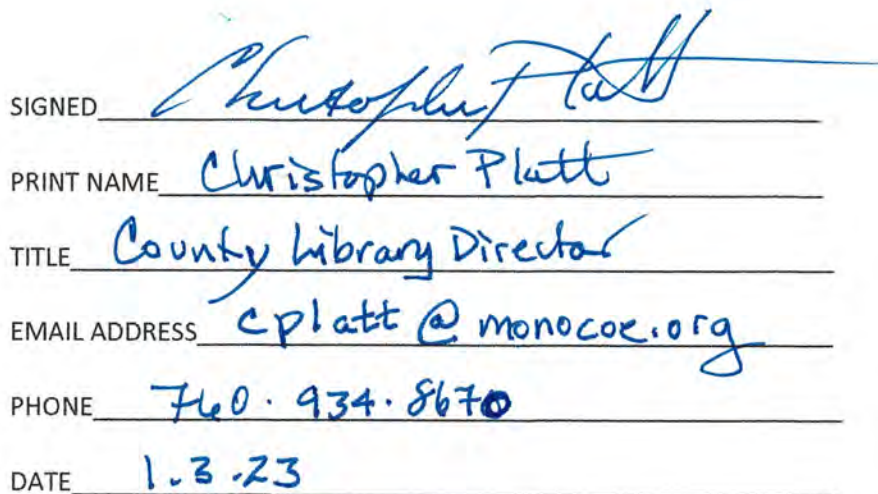 SIGNED Christopher Platt
PRINT NAME Christopher Platt
TITLE County Library Director
EMAIL ADDRESS cplatt@monocoe.org
PHONE 760.934.8670
DATE 1.3.23